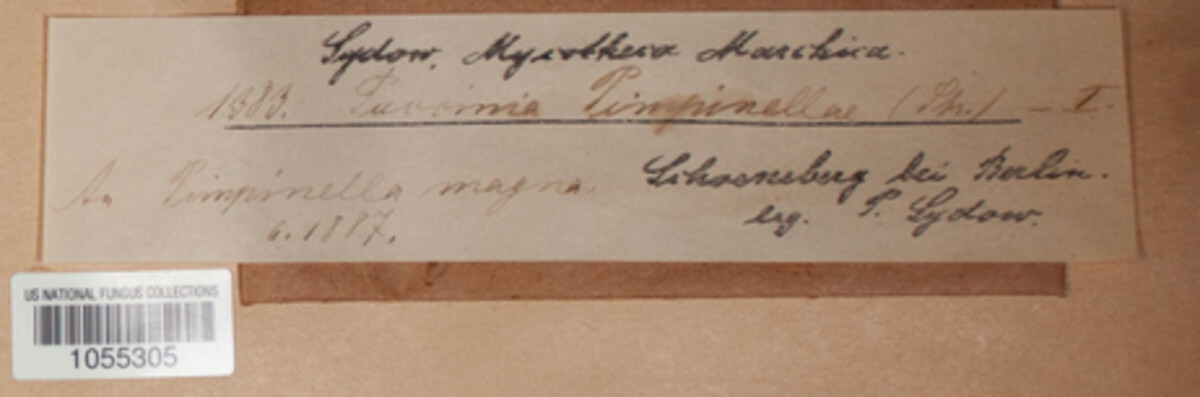 Sydow, Mycotheca Marchica.
1383. Puccinia Pimpinellae (Str.) — I.
An Pimpinella magna. Schoeneberg bei Berlin.
6.1887. leg. P. Sydow.
US NATIONAL FUNGUS COLLECTIONS
1055305